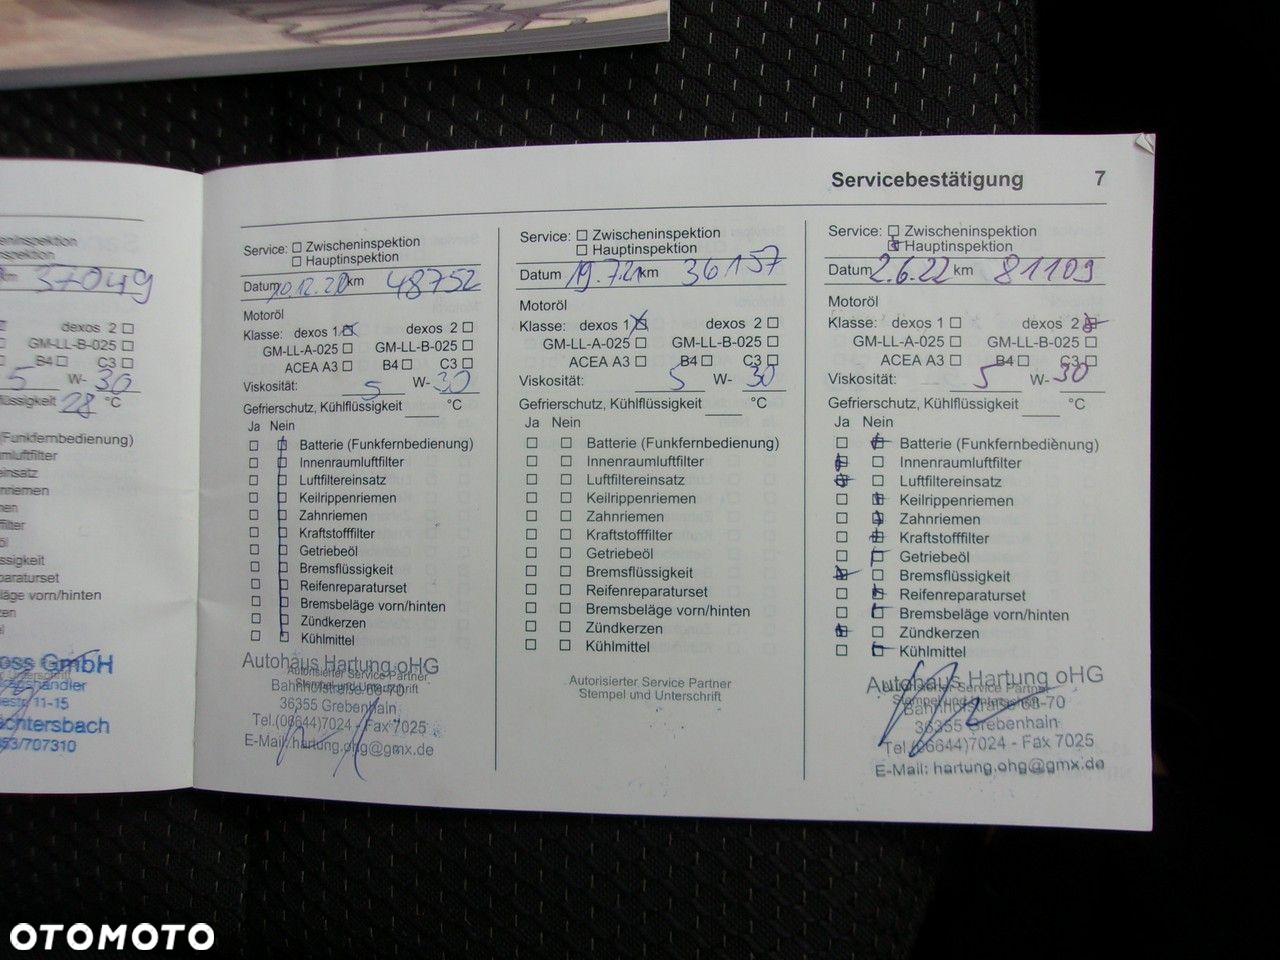 Servicebestätigung 7
eninspektion
spektion
km 37049
dexos 2
GM-LL-B-025
B4 C3
5 W- 30
lüssigkeit 28 °C
(Funkfernbedienung)
mluftfilter
einsatz
nriemen
men
filter
öl
ssigkeit
paraturset
äge vorn/hinten
zen
el
oss GmbH
11-15
chtersbach
53/707310
Service: Zwischeninspektion
Hauptinspektion
Datum 10.12.20 km 48752
Motoröl
Klasse: dexos 1 dexos 2
GM-LL-A-025 GM-LL-B-025
ACEA A3 B4 C3
Viskosität: 5 W- 30
Gefrierschutz, Kühlflüssigkeit °C
Ja Nein
Batterie (Funkfernbedienung)
Innenraumluftfilter
Luftfiltereinsatz
Keilrippenriemen
Zahnriemen
Kraftstofffilter
Getriebeöl
Bremsflüssigkeit
Reifenreparaturset
Bremsbeläge vorn/hinten
Zündkerzen
Kühlmittel
Autohaus Hartung oHG
Autorisierter Service Partner
Stempel und Unterschrift
Bahnhofstraße 68-70
36355 Grebenhain
Tel.(06644)7024 - Fax 7025
E-Mail: hartung.ohg@gmx.de
Service: Zwischeninspektion
Hauptinspektion
Datum 19.7.21 km 36157
Motoröl
Klasse: dexos 1 dexos 2
GM-LL-A-025 GM-LL-B-025
ACEA A3 B4 C3
Viskosität: 5 W- 30
Gefrierschutz, Kühlflüssigkeit °C
Ja Nein
Batterie (Funkfernbedienung)
Innenraumluftfilter
Luftfiltereinsatz
Keilrippenriemen
Zahnriemen
Kraftstofffilter
Getriebeöl
Bremsflüssigkeit
Reifenreparaturset
Bremsbeläge vorn/hinten
Zündkerzen
Kühlmittel
Autorisierter Service Partner
Stempel und Unterschrift
Service: Zwischeninspektion
Hauptinspektion
Datum 2.6.22 km 81109
Motoröl
Klasse: dexos 1 dexos 2
GM-LL-A-025 GM-LL-B-025
ACEA A3 B4 C3
Viskosität: 5 W- 30
Gefrierschutz, Kühlflüssigkeit °C
Ja Nein
Batterie (Funkfernbedienung)
Innenraumluftfilter
Luftfiltereinsatz
Keilrippenriemen
Zahnriemen
Kraftstofffilter
Getriebeöl
Bremsflüssigkeit
Reifenreparaturset
Bremsbeläge vorn/hinten
Zündkerzen
Kühlmittel
Autohaus Hartung oHG
Autorisierter Service Partner
Stempel und Unterschrift
Bahnhofstraße 68-70
36355 Grebenhain
Tel.(06644)7024 - Fax 7025
E-Mail: hartung.ohg@gmx.de
OTOMOTO